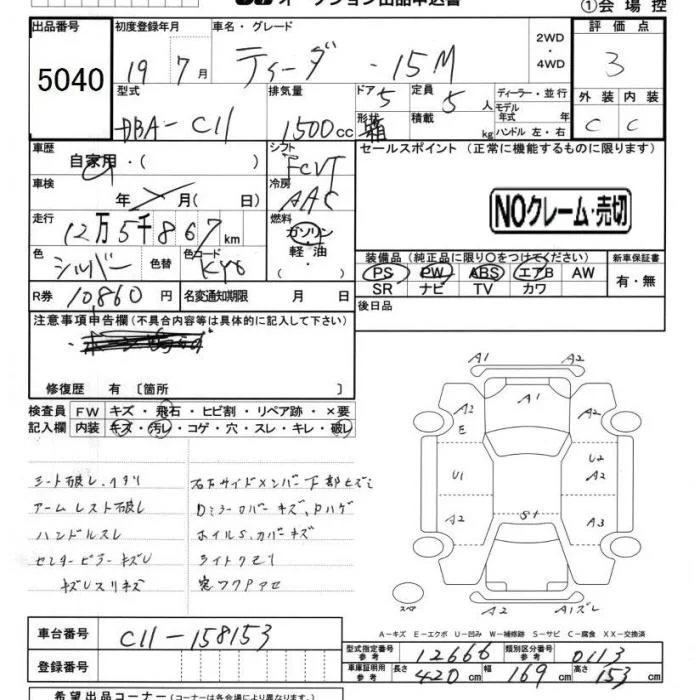 ①会場控
出品番号 初度登録年月 車名・グレード 2WD・4WD 評価点
5040 19年7月 ティーダ・15M 3
型式 排気量 ドア 5 定員 5人 ディーラー・並行 外装 内装
DBA-C11 1500cc 形状 箱 積載 kg モデル年式 年 ハンドル 左・右 C C
車歴 自家用・( ) シフト FCVT セールスポイント (正常に機能するものに限ります)
車検 年 月( 日) 冷房 AAC
NOクレーム・売切
走行 12万5千867km 燃料 ガソリン・軽油・( )
色 シルバー 色替 色コード KY0
装備品 (純正品に限り○をつけてください) 新車保証書
PS PW ABS エアB AW 有・無
SR ナビ TV カワ
R券 10860円 名変通知期限 月 日 後日品
注意事項申告欄 (不具合内容等は具体的に記入して下さい)
修復歴 有 〔箇所 〕
検査員 FW キズ・飛石・ヒビ割・リペア跡・×要
記入欄 内装 キズ・汚レ・コゲ・穴・スレ・キレ・破レ
シート破レ、ヘタリ
アームレスト破レ
ハンドルスレ
センターピラーキズU
キズUスリキズ
右下サイドメンバー下部ヒズミ
Dミラーカバーキズ、Pハゲ
ホイルS、カバーキズ
ライトクモリ
窓ワクアセ
A1 A2
A2 A1 A2
E
U1 U2
A2
A2 S1 A3
スペア A2 A1ズレ
A-キズ E-エクボ U-凹み W-補修跡 S-サビ C-腐食 XX-交換済
車台番号 C11-158153
型式指定番号 参考 12666 類別区分番号 参考 0113
登録番号
車庫証明用 参考 長さ 420cm 幅 169cm 高さ 153cm
希望出品コーナー (コーナーは各会場により異なります)